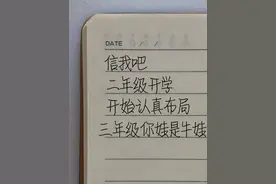 DATE
信我吧
二年级开学
开始认真布局
三年级你娃是牛娃